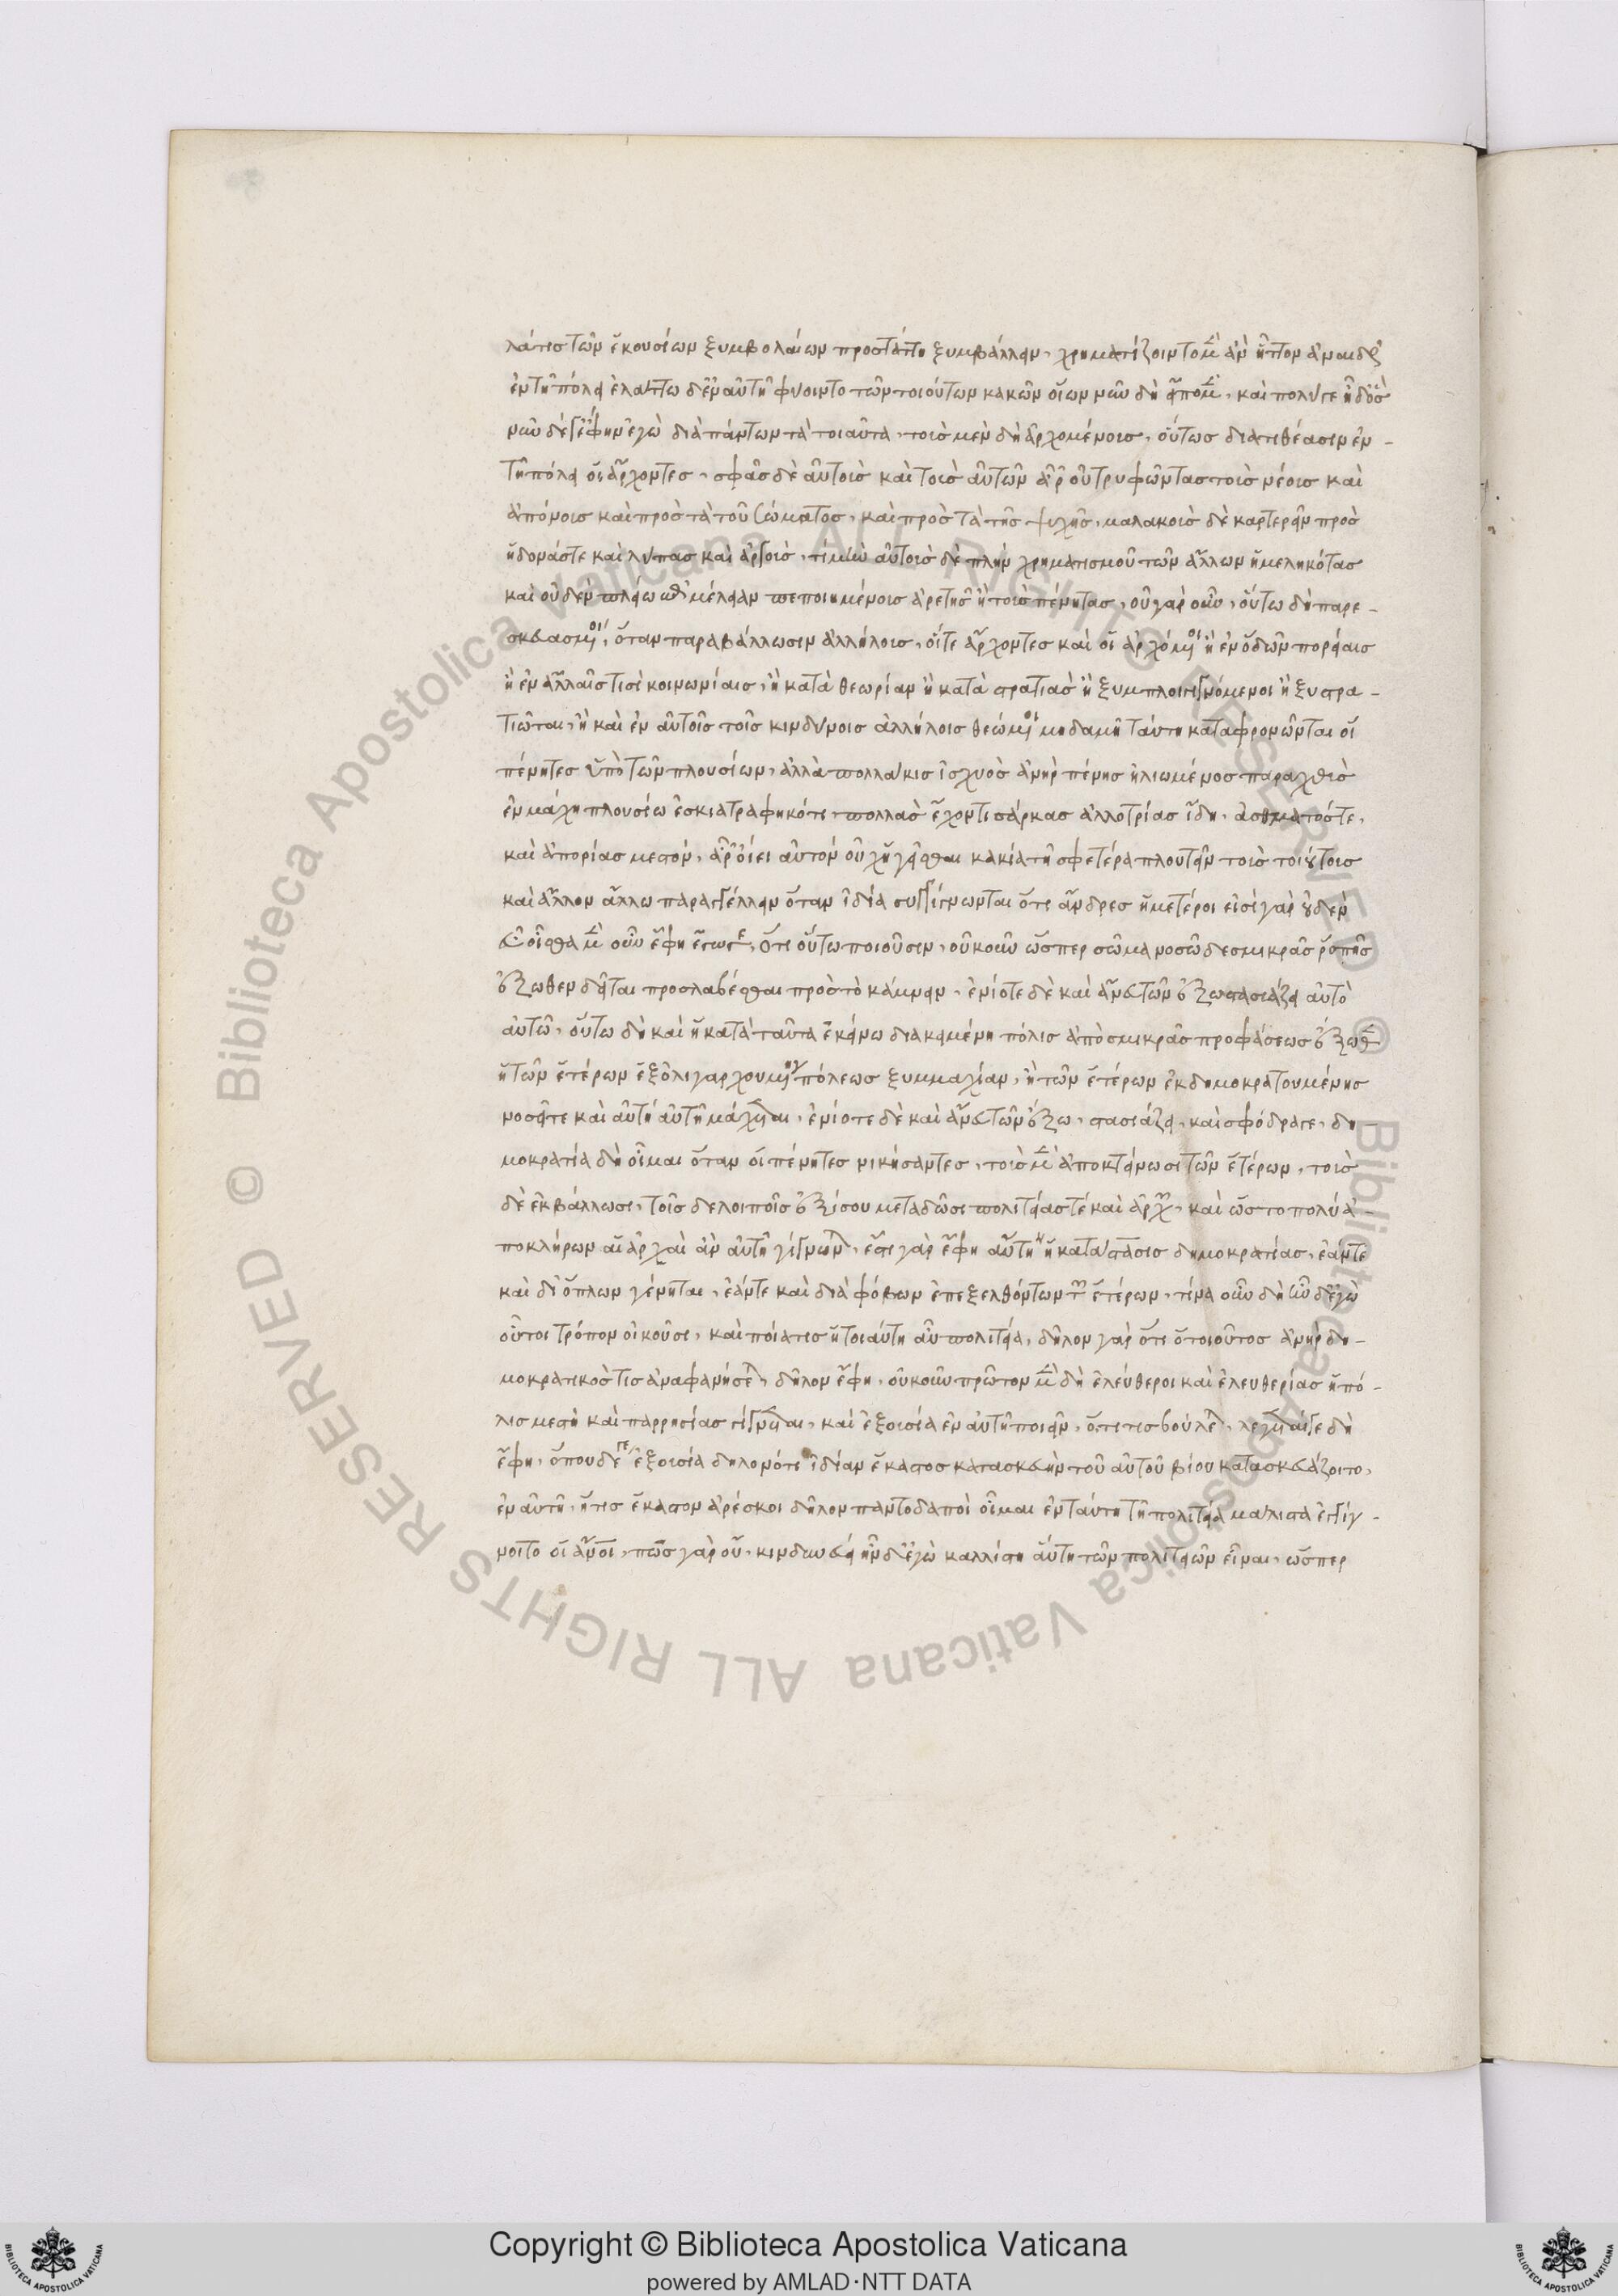 λάτισ τῶν ἑκουσίων ξυμβολαίων προστάττη ξυμβάλλειν, χρηματίζοιντο μὲν ἂν ἧττον ἀναιδῶς
ἐν τῆ πόλει ἐλάττω δ' ἐν αὐτῆ φύοιντο τῶν τοιούτων κακῶν οἵων νῦν δὴ εἴπομεν, καὶ πολύ γε ἦ δ' ὅς
νῦν δέ γ' ἔφην ἐγὼ διὰ πάντων τὰ τοιαῦτα, τοὺσ μὲν δὴ ἀρχομένουσ, οὕτωσ διατιθέασιν ἐν
τῆ πόλει οἱ ἄρχοντεσ, σφᾶσ δὲ αὐτοὺσ καὶ τοὺσ αὐτῶν ἆρ' οὐ τρυφῶντασ τοὺσ νέουσ καὶ
ἀπόνουσ καὶ πρὸσ τὰ τοῦ σώματοσ, καὶ πρὸσ τὰ τῆσ ψυχῆσ, μαλακοὺσ δὲ καρτερεῖν πρὸσ
ἡδονάσ τε καὶ λύπασ καὶ ἀργοὺσ, τί μὴν αὐτοὺσ δὲ πλὴν χρηματισμοῦ τῶν ἄλλων ἠμεληκότασ
καὶ οὐδὲν πλείω ἐπιμέλειαν πεποιημένουσ ἀρετῆσ ἢ τοὺσ πένητασ, οὐ γὰρ οὖν, οὕτω δὴ παρε-
σκευασμένοι, ὅταν παραβάλλωσιν ἀλλήλοισ, οἵ τε ἄρχοντεσ καὶ οἱ ἀρχόμενοι ἢ ἐν ὁδῶν πορείαισ
ἢ ἐν ἄλλαισ τισὶ κοινωνίαισ, ἢ κατὰ θεωρίαν ἢ κατὰ στρατιὰσ ἢ ξύμπλοι γιγνόμενοι ἢ ξυστρα-
τιῶται, ἢ καὶ ἐν αὐτοῖσ τοῖσ κινδύνοισ ἀλλήλουσ θεώμενοι μηδαμῆ ταύτη καταφρονῶνται οἱ
πένητεσ ὑπὸ τῶν πλουσίων, ἀλλὰ πολλάκισ ἰσχνὸσ ἀνὴρ πένησ ἡλιωμένοσ παραχθεὶσ
ἐν μάχη πλουσίω ἐσκιατραφηκότι, πολλὰσ ἔχοντι σάρκασ ἀλλοτρίασ ἴδη, ἄσθματόσ τε,
καὶ ἀπορίασ μεστὸν, ἆρ' οἴει αὐτὸν οὐχ ἡγεῖσθαι κακία τῆ σφετέρα πλουτεῖν τοὺσ τοιούτουσ
καὶ ἄλλον ἄλλω παραγγέλλειν ὅταν ἰδία συγγίγνωνται ὅτι ἄνδρεσ ἡμετέροι εἰσὶ γὰρ οὐδέν
εὖ οἶσθα μὲν οὖν ἔφη ἔγωγε, ὅτι οὕτω ποιοῦσιν, οὐκοῦν ὥσπερ σῶμα νοσῶδεσ μικρᾶσ ῥοπῆσ
ἔξωθεν δεῖται προσλαβέσθαι πρὸσ τὸ κάμνειν, ἐνίοτε δὲ καὶ ἄνευ τῶν ἔξω στασιάζει αὐτὸ
αὑτῶ, οὕτω δὴ καὶ ἡ κατὰ ταῦτα ἐκείνω διακειμένη πόλισ ἀπὸ σμικρᾶσ προφάσεωσ ἔξωθεν
ἢ τῶν ἑτέρων ἐξ ὀλιγαρχουμένησ πόλεωσ ξυμμαχίαν, ἢ τῶν ἑτέρων ἐκ δημοκρατουμένησ
νοσεῖ τε καὶ αὐτὴ αὑτῆ μάχεται, ἐνίοτε δὲ καὶ ἄνευ τῶν ἔξω, στασιάζει, καὶ σφόδρα γε, δη-
μοκρατία δὴ οἶμαι ὅταν οἱ πένητεσ νικήσαντεσ, τοὺσ μὲν ἀποκτείνωσι τῶν ἑτέρων, τοὺσ
δὲ ἐκβάλλωσι, τοῖσ δὲ λοιποῖσ ἐξ ἴσου μεταδῶσι πολιτείασ τέ καὶ ἀρχῶν, καὶ ὡσ τὸ πολὺ ἀ-
πὸ κλήρων αἱ ἀρχαὶ ἐν αὐτῆ γίγνωνται, ἔστι γὰρ ἔφη αὕτη ἡ κατάστασισ δημοκρατίασ, ἐάν τε
καὶ δι' ὅπλων γένηται, ἐάν τε καὶ διὰ φόβων ἐπεξελθόντων τῶν ἑτέρων, τίνα οὖν δὴ ἦν δ' ἐγὼ
οὗτοι τρόπον οἰκοῦσι, καὶ ποία τισ ἡ τοιαύτη αὖ πολιτεία, δῆλον γὰρ ὅτι ὁ τοιοῦτοσ ἀνὴρ δη-
μοκρατικόσ τισ ἀναφανήσεται, δῆλον ἔφη, οὐκοῦν πρῶτον μὲν δὴ ἐλεύθεροι καὶ ἐλευθερίασ ἡ πό-
λισ μεστὴ καὶ παρρησίασ γίγνεται, καὶ ἐξουσία ἐν αὐτῆ ποιεῖν, ὅτι τισ βούλεται, λέγεταί γε δὴ
ἔφη, ὅπου δέ γε ἐξουσία δῆλον ὅτι ἰδίαν ἕκαστοσ κατασκευὴν τοῦ αὑτοῦ βίου κατασκευάζοιτο,
ἐν αὐτῆ, ἥτισ ἕκαστον ἀρέσκοι δῆλον παντοδαποὶ οἶμαι ἐν ταύτη τῆ πολιτεία μάλιστα ἐγγίγ-
νοιτο οἱ ἄνθρωποι, πῶσ γὰρ οὔ, κινδυνεύει ἦν δ' ἐγὼ καλλίστη αὕτη τῶν πολιτειῶν εἶναι, ὥσπερ
Copyright © Biblioteca Apostolica Vaticana
powered by AMLAD·NTT DATA
© Biblioteca Apostolica Vaticana ALL RIGHTS RESERVED © Biblioteca Apostolica Vaticana ALL RIGHTS RESERVED
BIBLIOTECA APOSTOLICA VATICANA
BIBLIOTECA APOSTOLICA VATICANA